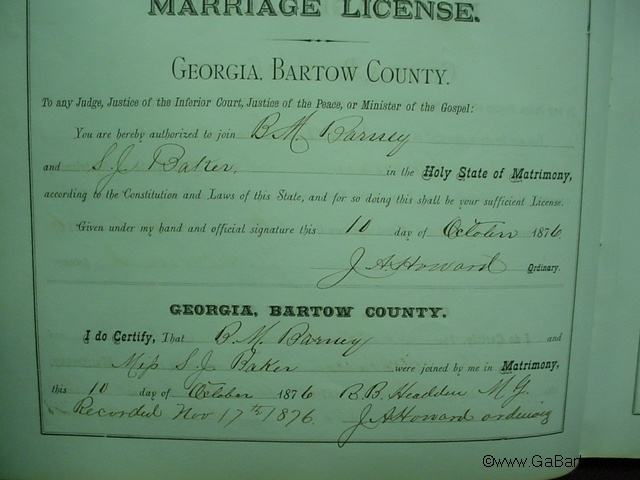 MARRIAGE LICENSE.
GEORGIA, BARTOW COUNTY.
To any Judge, Justice of the Inferior Court, Justice of the Peace, or Minister of the Gospel:
You are hereby authorized to join B. M. Barney
and S. J. Baker, in the Holy State of Matrimony,
according to the Constitution and Laws of this State, and for so doing this shall be your sufficient License.
Given under my hand and official signature this 10 day of October 1876
J A Howard Ordinary.
GEORGIA, BARTOW COUNTY.
I do Certify, That B. M. Barney and
Miss S. J. Baker were joined by me in Matrimony,
this 10 day of October 1876 B. B. Headden M. G.
Recorded Nov 17th 1876. J A Howard ordinary
©www.GaBar